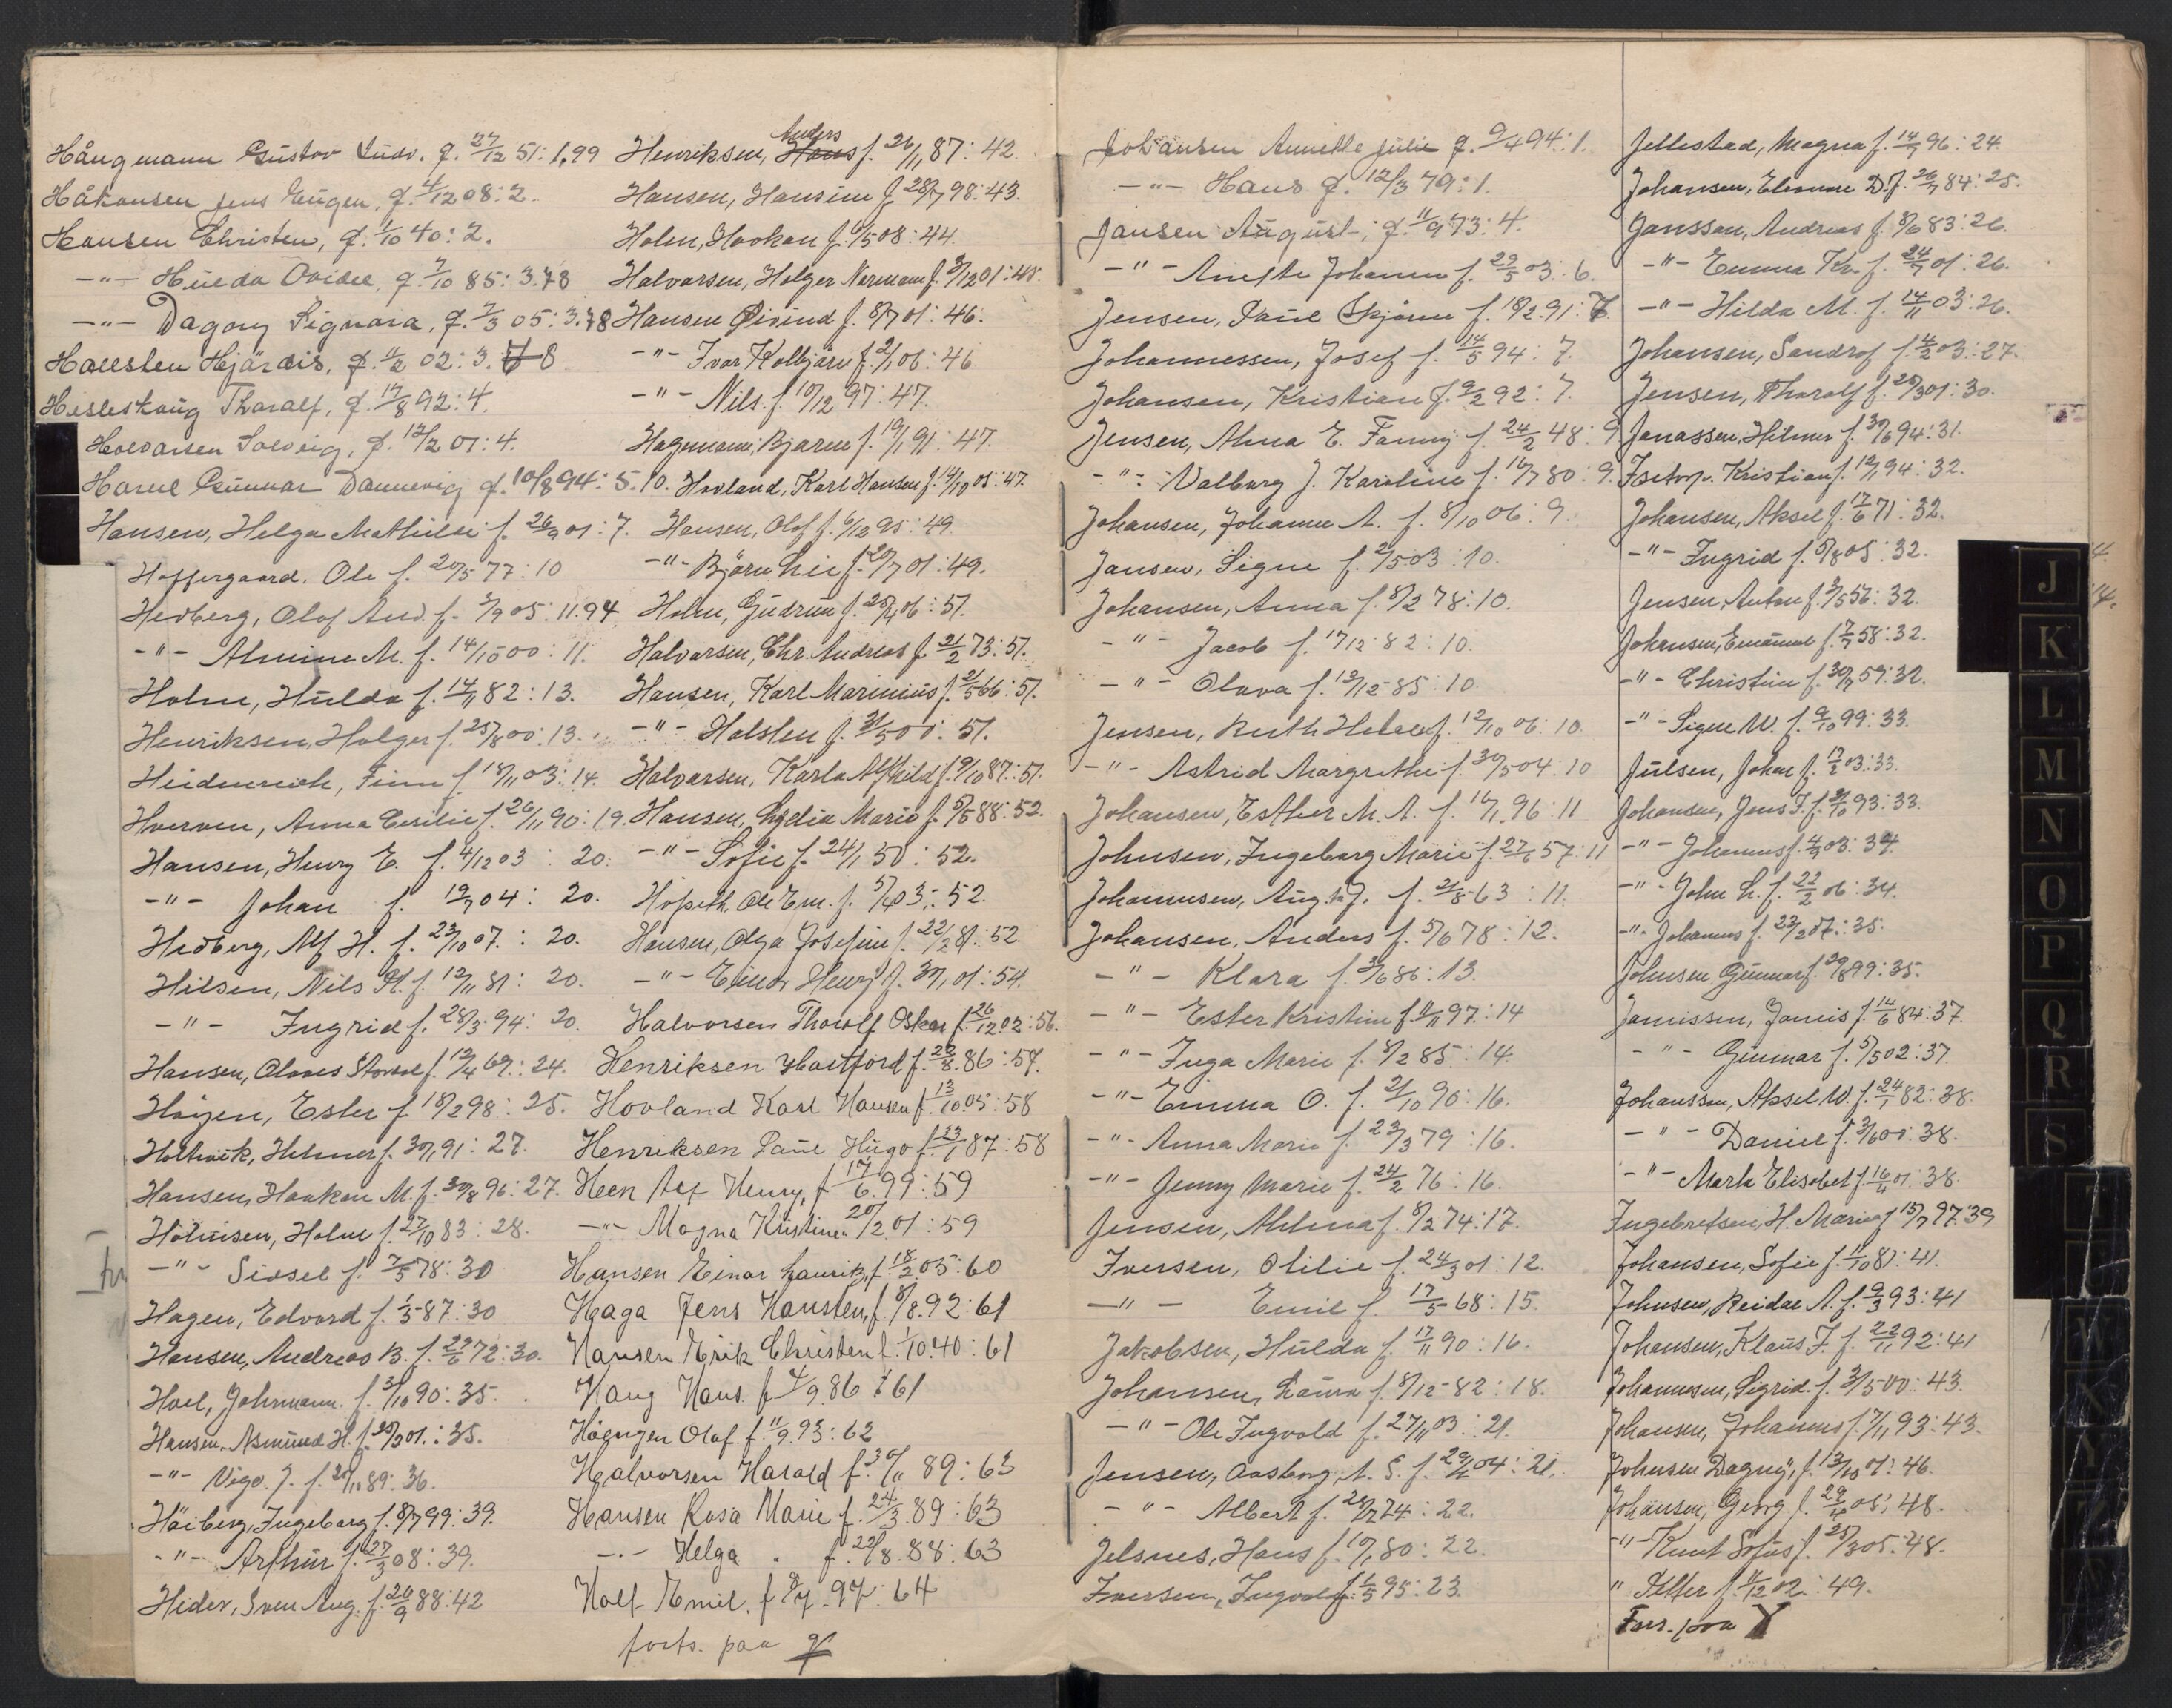 Haugmann Gustav Ludv. f. 27/12 51: 1.99
Håkonsen Jens Eugen, f. 4/12 08: 2.
Hansen Christen, f. 1/10 40: 2.
-"- Hulda f. 7/10 85: 3.78
-"- Dagny Signora, f. 7/3 05: 3.78
Hallsten Hjärdis, f. 11/2 02: 3. 8
Thoralf, f. 17/8 92: 4.
Halvorsen Solveig, f. 12/2 01: 4.
Gunnar Dannevig f. 10/8 94: 5.10.
Hansen, Helga Mathilde f. 26/9 01: 7.
Hoffergaard, Ole f. 20/5 77: 10
Hedberg, Olof And. f. 3/9 05: 11.94
-"- Almine M. f. 14/10 00: 11.
Holm, Hulda f. 14/11 82: 13.
Henriksen, Holger f. 25/8 00: 13.
Heidenreich, Finn f. 18/11 03: 14.
Hverven, Anna Cesilie f. 26/11 90: 19.
Hansen, Henry E. f. 4/12 03: 20.
-"- Johan f. 19/7 04: 20.
Hedberg, Alf H. f. 23/10 07: 20.
Hilsen, Nils f. 12/11 81: 20.
-"- Ingrid f. 28/3 94: 20.
Hansen, Olaves f. 12/4 69: 24.
Höyen, Ester f. 18/2 98: 25.
Holtvik, Helmer f. 30/1 91: 27.
Hansen, Haakon M. f. 30/8 96: 27.
Holm f. 27/10 83: 28.
-"- Sissel f. 7/5 78: 30
Hagen, Edvard f. 1/5 87: 30
Hansen, Andreas B. f. 29/6 72: 30.
Hoel, Johrmann f. 3/10 90: 35.
Hansen, Asmund H. f. 20/3 01: 35.
-"- Vigo J. f. 20/10 89: 36.
Höiberg, Ingeborg f. 8/7 99: 39.
-"- Arthur f. 27/3 08: 39.
Hider, Sven Aug. f. 26/9 88: 42
Anders
Henriksen, Hans f. 26/11 87: 42.
Hansen, Hansine f. 28/7 98: 43.
Holm, Haakon f. 1/5 08: 44.
Halvorsen, Holger Normann f. 3/12 01: 45.
Hansen Öivind f. 8/7 01: 46.
-"- Ivar Kolbjörn f. 2/1 06: 46
-"- Nils f. 10/12 97: 47.
Hagemann, Bjarne f. 19/1 91: 47.
Hovland, Karl Hansen f. 14/10 05: 47.
Hansen, Olof f. 6/12 95: 49.
-"- Björn Lie f. 20/7 01: 49.
Holm, Gudrun f. 25/4 06: 51.
Halvorsen, Chr. Andreas f. 21/2 73: 51.
Hansen, Karl Marinius f. 2/5 66: 51.
-"- Halsten f. 31/5 00: 51.
Halvorsen, Karla Alfhild f. 9/10 87: 51.
Hansen, Lydia Marie f. 5/5 88: 52.
-"- Sofie f. 24/1 50: 52.
Hopseth, Ole Em. f. 5/4 03: 52.
Hansen, Olga Josefine f. 22/2 81: 52.
-"- Einar Henry f. 30/1 01: 54.
Halvorsen Thorolf Oskar f. 26/12 02: 56.
Henriksen Hartford f. 29/8. 86: 57.
Hovland Karl Hansen f. 13/10 05: 58
Henriksen Paul Hugo f. 23/1 87: 58
Heen Alf Henry, f 17/6. 99: 59
-"- Magna Kristine 20/2 01: 59
Hansen Einar Laurits f. 18/2 05: 60
Haaga Jens Karsten, f. 8/8. 92: 61
Hansen Erik Christen f. 1/10. 40: 61
Haug Hans f. 4/9. 86: 61
Höengen Olaf f. 11/9. 93: 62
Halvorsen Harald f. 30/11 89: 63
Hansen Rosa Marie f. 24/3. 89: 63
-"- Helga " f. 22/8. 88: 63
Holf Emil. f 8/7. 97: 64
forts. paa
Johansen Annette Julie f. 9/4 94: 1.
-"- Hans f. 12/3 79: 1.
Jansen August, f. 11/9 73: 4.
-"- Anethe Johanne f. 29/5 03: 6.
Jensen, Paul Skjönn f. 18/2 91: 7.
Johannessen, Josef f. 14/5 94: 7.
Johansen, Kristian f. 9/2 92: 7.
Jensen, Alma E. Fanny f. 24/2 48: 9
-"- Valborg J. Karoline f. 16/7 80: 9.
Johansen, Johanne A. f. 8/10 06: 9.
Jansen, Signe f. 2/5 03: 10.
Johansen, Anna f. 8/2 78: 10.
-"- Jacob f. 17/12 82: 10.
-"- Olava f. 12/12 85: 10.
Jensen, Ruth Helene f. 12/10 06: 10.
-"- Astrid Margrethe f. 30/5 04: 10
Johansen, Esther M. A. f. 16/1 96: 11
Johnsen, Ingeborg Marie f. 27/6 57: 11
Johannesen, Aug. J. f. 2/8 63: 11.
Johansen, Anders f. 5/6 78: 12.
-"- Klara f. 3/6 86: 13.
-"- Ester Kristine f. 11/11 97: 14
-"- Inga Marie f. 8/2 85: 14.
-"- Emma O. f. 21/10 90: 16.
-"- Anna Marie f. 23/3 79: 16.
-"- Jenny Marie f. 24/2 76: 16.
Jensen, Alma f. 8/2 74: 17.
Iversen, Otilie f. 24/3 01: 12.
-"- Emil f. 17/5 68: 15.
Jakobsen, Hulda f. 17/11 90: 16.
Johansen, Laura f. 8/12 82: 18.
-"- Ole Ingvold f. 27/11 03: 21.
Jensen, Aasborg A. S. f. 29/4 04: 21.
-"- Albert f. 28/7 74: 22.
Jelsnes, Hans f. 10/1 80: 22.
Iversen, Ingvald f. 1/5 95: 23.
Jellestad, Magna f. 14/7 96: 24.
Johansen, Eleonore D. f. 26/7 84: 25.
Jansson, Andreas f. 8/6 83: 26.
-"- Emma Kr. f. 24/7 01: 26.
-"- Hilda M. f. 14/11 03: 26.
Johansen, Sandrof f. 4/2 03: 27.
Jensen, Tharalf f. 25/3 01: 30.
Jonassen, Hilmer f. 30/6 94: 31.
Kristian f. 19/1 94: 32.
Johansen, Aksel f. 17/6 71: 32.
-"- Ingrid f. 5/8 05: 32.
Jensen, Anton f. 3/5 56: 32.
Johansen, Emanuel f. 7/7 58: 32.
-"- Christine f. 30/7 59: 32.
-"- Signe W. f. 9/10 99: 33.
Julsen, Johan f. 17/2 03: 33.
Johansen, Jens F. f. 3/10 93: 33.
-"- Johannes f. 4/9 03: 34.
-"- John L. f. 22/2 06: 34.
-"- Johannes f. 23/2 07: 35.
Johnsen Gunnar f. 29/8 99: 35.
Jamissen, Jamis f. 14/6 84: 37.
-"- Gunnar f. 5/5 02: 37.
Johanssen, Aksel W. f. 24/1 82: 38.
-"- Daniel f. 3/6 00: 38.
-"- Marta Elisabet f. 16/4 01: 38.
Ingebretsen, H. Marie f. 15/7 97: 39
Johansen, Sofie f. 11/10 81: 41.
Johnsen, Reidar A. f. 9/3 93: 41
Johansen, Klaus F. f. 22/11 92: 41
Johannesen, Sigrid f. 3/5 00: 43.
Johansen, Johannes f. 7/11 93: 43.
Johnsen Dagny, f. 13/10 01: 46.
Johansen, Georg f. 29/4 05: 48.
-"- Knut Sofus f. 25/3 05: 48.
" Petter f. 11/12 02: 49.
Fors. paa Y
J
K
L
M
N
O
P
Q
R
S